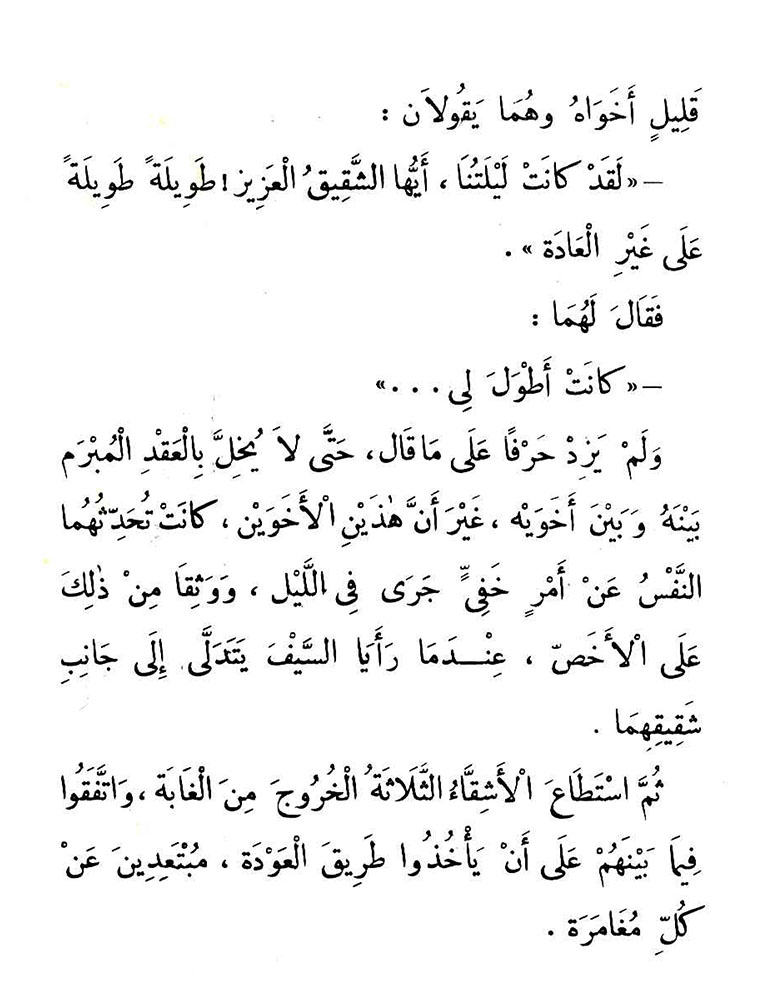 قَلِيلٍ أَخَوَاهُ وهُمَا يَقُولاَن :
—«لَقَدْ كانَتْ لَيْلَتُنَا ، أَيُّها الشَّقِيقُ الْعَزِيز ! طَوِيلَةً طَوِيلَةً
عَلَى غَيْرِ الْعَادَة » .
فَقَالَ لَهُمَا :
—«كانَتْ أَطْوَلَ لِى . . . »
وَلَمْ يَزِدْ حَرْفًا عَلَى مَا قَال ، حَتَّى لاَ يُخِلَّ بِالْعَقْدِ الْمُبْرَم
بَيْنَهُ وَبَيْنَ أَخَوَيْه ، غَيْرَ أَنَّ هٰذَيْنِ الْأَخَوَيْن ، كانَتْ تُحَدِّثُهُما
النَّفْسُ عَنْ أَمْرٍ خَفِىٍّ جَرَى فِى اللَّيْل ، وَوَثِقَا مِنْ ذٰلِكَ
عَلَى الْأَخَصّ ، عِنْـدَمَا رَأَيَا السَّيْفَ يَتَدَلَّى إِلَى جَانِبِ
شَقِيقِهِمَا .
ثُمَّ اسْتَطَاعَ الْأَشِقَّاءُ الثَّلَاثَةُ الْخُرُوجَ مِنَ الْغَابَة ، وَاتَّفَقُوا
فِيمَا بَيْنَهُمْ عَلَى أَنْ يَأْخُذُوا طَرِيقَ الْعَوْدَة ، مُبْتَعِدِينَ عَنْ
كُلِّ مُغَامَرَة .